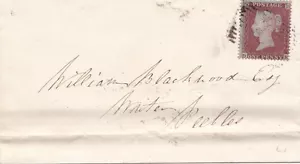 POSTAGE
ONE PENNY
William Blackwood Esq
Peebles